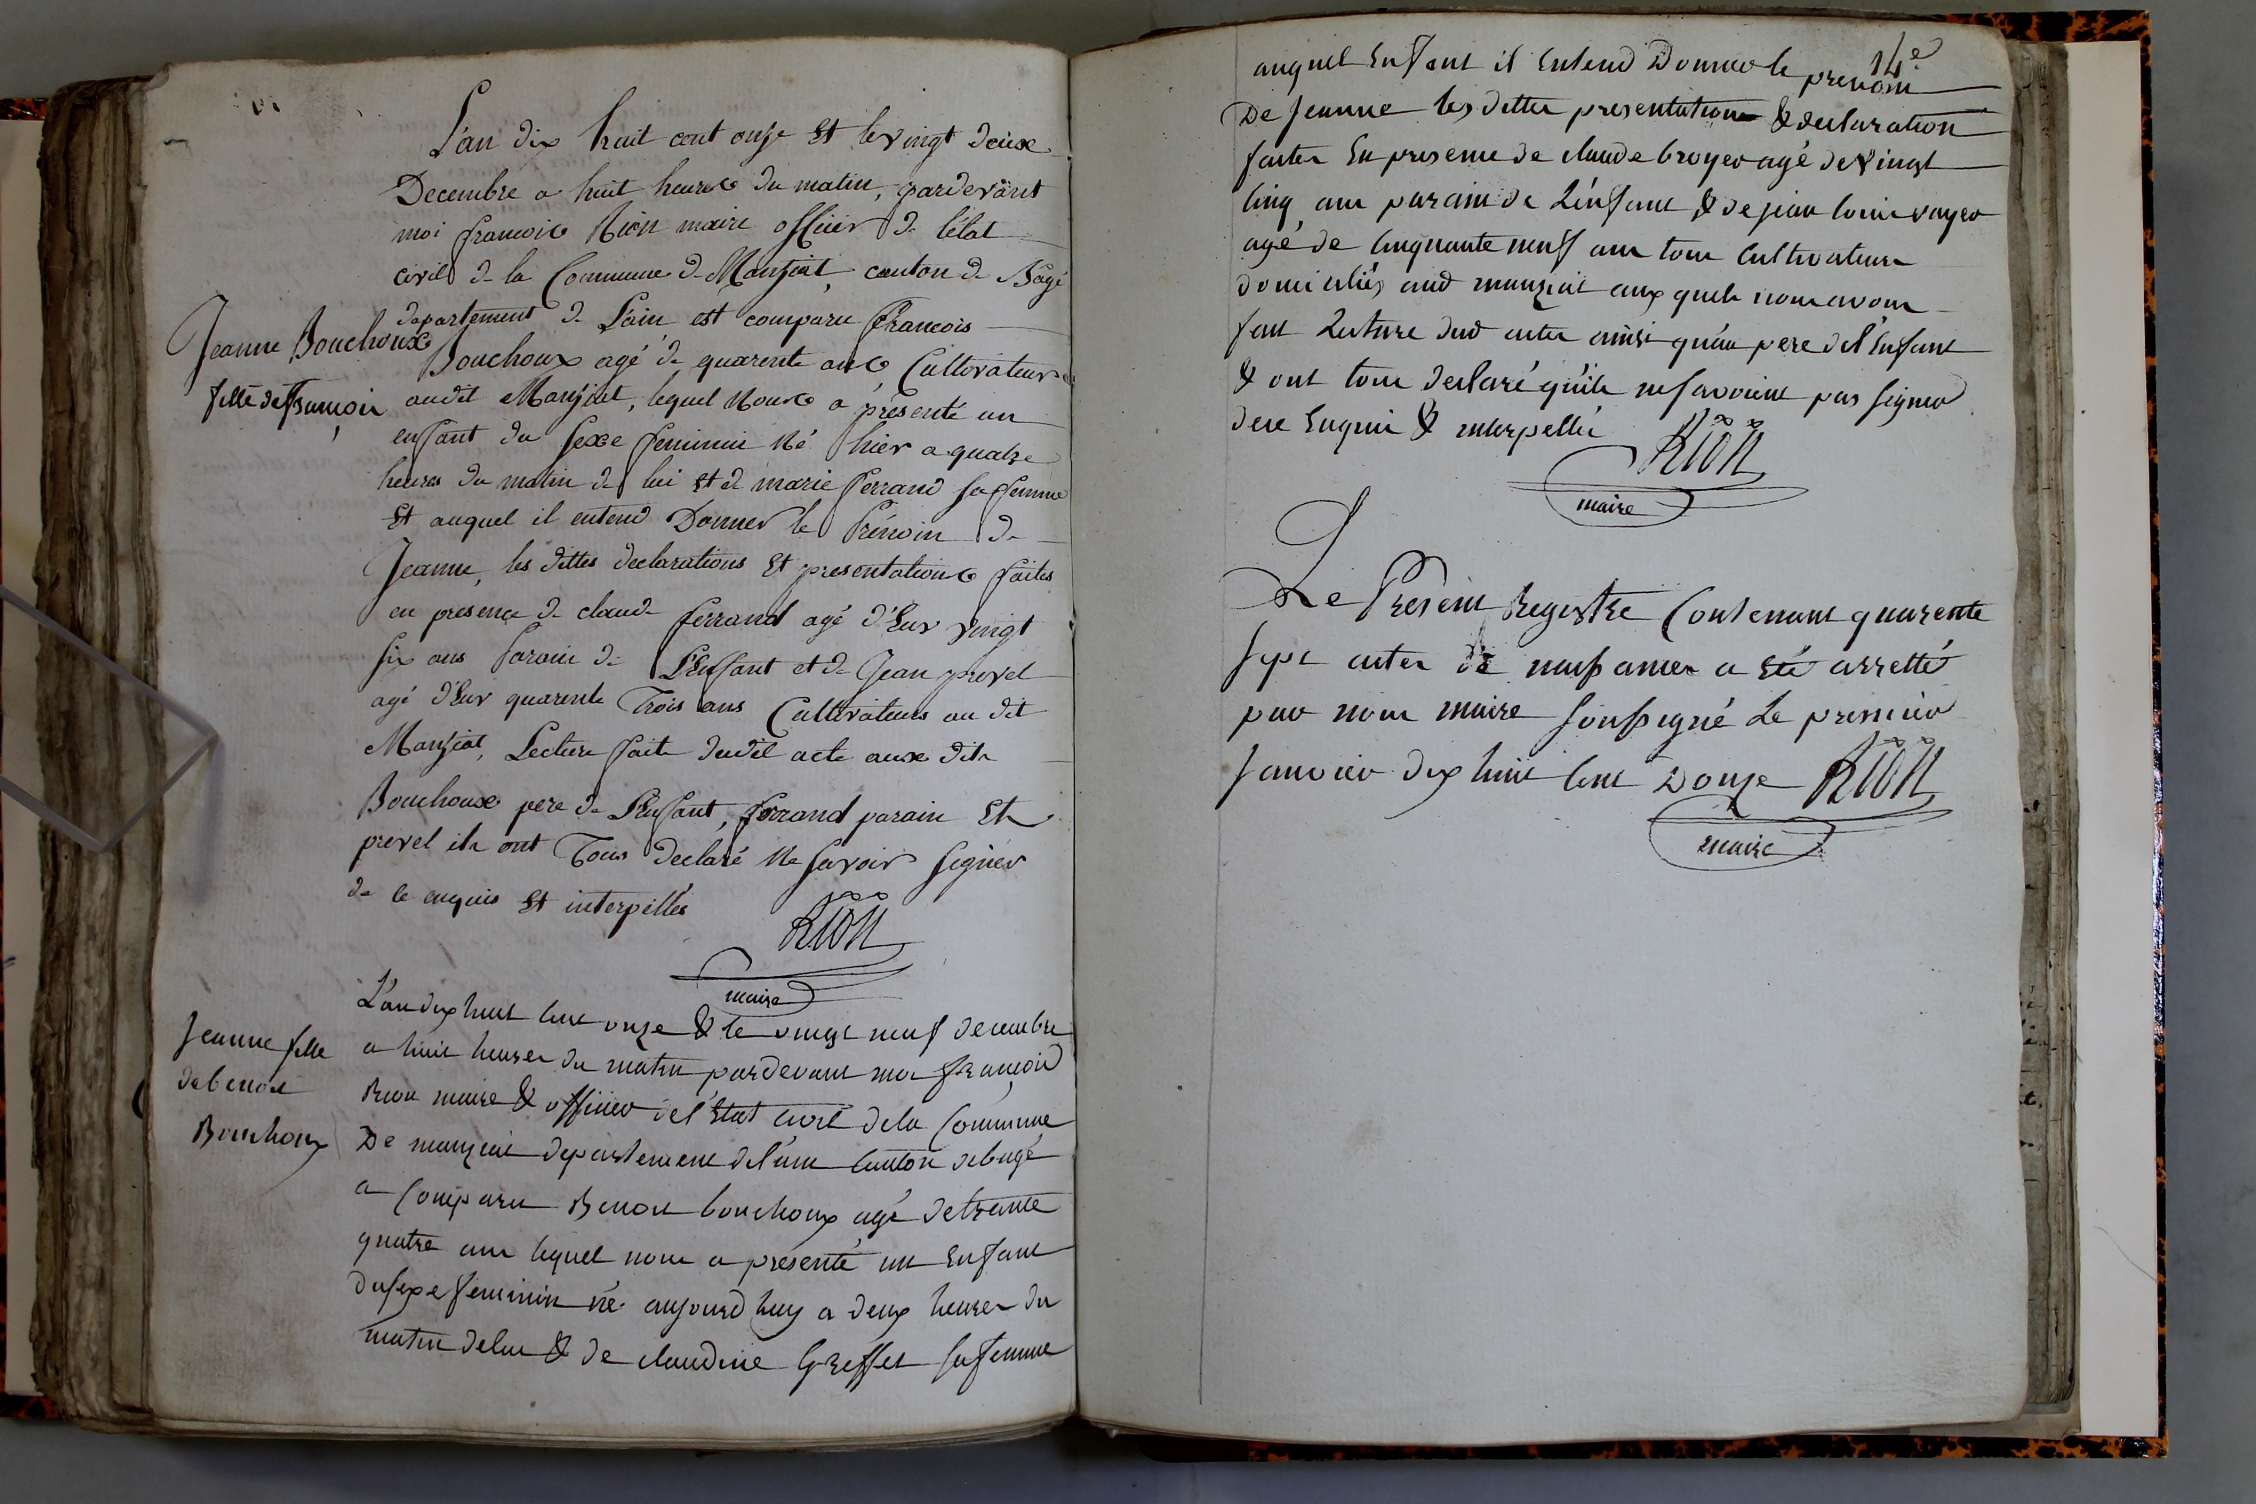 L'an dix huit cent onze Et le vingt deuxe
Decembre a huit heures du matin, pardevant
moi francois Rion maire officier de l'état
civil de la Commune de Manziat, canton de Bagé
departement de L'ain est comparu Francois
Jeanne Bouchoux
fille de François
Bouchoux agé de quarente ans Cultivateur
audit Manziat, lequel Nous a présenté un
enfant du sexe feminin Né hier a quatre
heures du matin de lui Et de marie ferrand sa femme
Et auquel il entend Donner le Prénom de
Jeanne, les dittes declarations Et presentations faites
en presence de claude ferrand agé d'Euv vingt
six ans Parain de L'Enfant et de Jean prevel
agé d'Euv quarente Trois ans Cultivateurs au dit
Manziat, Lecture faite dudit acte aux dits
Bouchoux pere de L'Enfant, ferrand parain Et
prevel ils ont Tous declaré Ne savoir signer
de ce enquis Et interpellés
Rion
maire
Jeanne fille
de benoit
Bouchoux
L'an dix huit cent onze & le vingt neuf decembre
a huit heures du matin pardevant moi françois
Rion maire & officier de l'Etat civil de la Commune
De manziat departement de l'ain Canton de bagé
a Comparu Benoit bouchoux agé de trante
quatre ans lequel nous a presenté un Enfant
du sexe feminin né aujourd huy a deux heures du
matin de lui & de claudine Greffet sa femme
14e
auquel Enfant il Entend Donner le prenom
De Jeanne les dittes presentation & declaration
faites En presence de claude broyer agé de vingt
Cinq ans parain de L'enfant & de jean louis voyer
agé de Cinquante neuf ans tous Cultivateurs
domiciliés aud manziat aux quels nous avons
fait Lecture dud acte ainsi qu'au pere de l'Enfant
& ont tous declaré qu'ils ne savoient pas signer
de ce Enquis & interpellés
Rion
maire
Le Present Registre Contenant quarente
sept actes de naissances a Eté arretté
par nous maire soussigné Le premier
Janvier dix huit Cent Douze Rion
maire